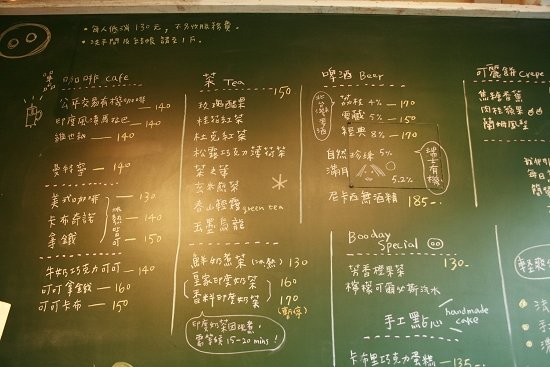 • 每人低消130元，不另收服務費。
咖啡 cafe
公平交易有機咖啡 — 140
印度風清馬拉巴 — 140
維也納 — 140
曼特寧 — 140
美式咖啡 — 130
卡布奇諾 — 140
拿鐵 — 150
冰熱皆可
牛奶巧克力可可 — 140
可可拿鐵 — 160
可可卡布 — 150
茶 Tea 150
玫瑰醋栗
桂花紅茶
杜克紅茶
松露巧克力薄荷茶
茶之笨
玄米煎茶
春山綠霧 green tea
玉墨烏龍
鮮奶蕉茶 (冰熱) 130
皇家印度奶茶 160
香料印度奶茶 170
(暫停)
印度奶茶因現煮，
需等候 15-20 mins!
啤酒 Beer
荔枝 4% — 170
雪藏 5% — 150
經典 8% — 170
自然珍珠 5%
滿月 5.2%
瑞士有機
尼卡西無酒精 185-
Booday
Special
芳香橙果茶 130-
檸檬可爾必斯汽水
手工點心
handmade
cake
卡布里巧克力蛋糕 — 135-
可麗餅 Crepe
焦糖香蕉
肉桂蘋果
蘭姆風梨
我們
每日
簡
輕鬆